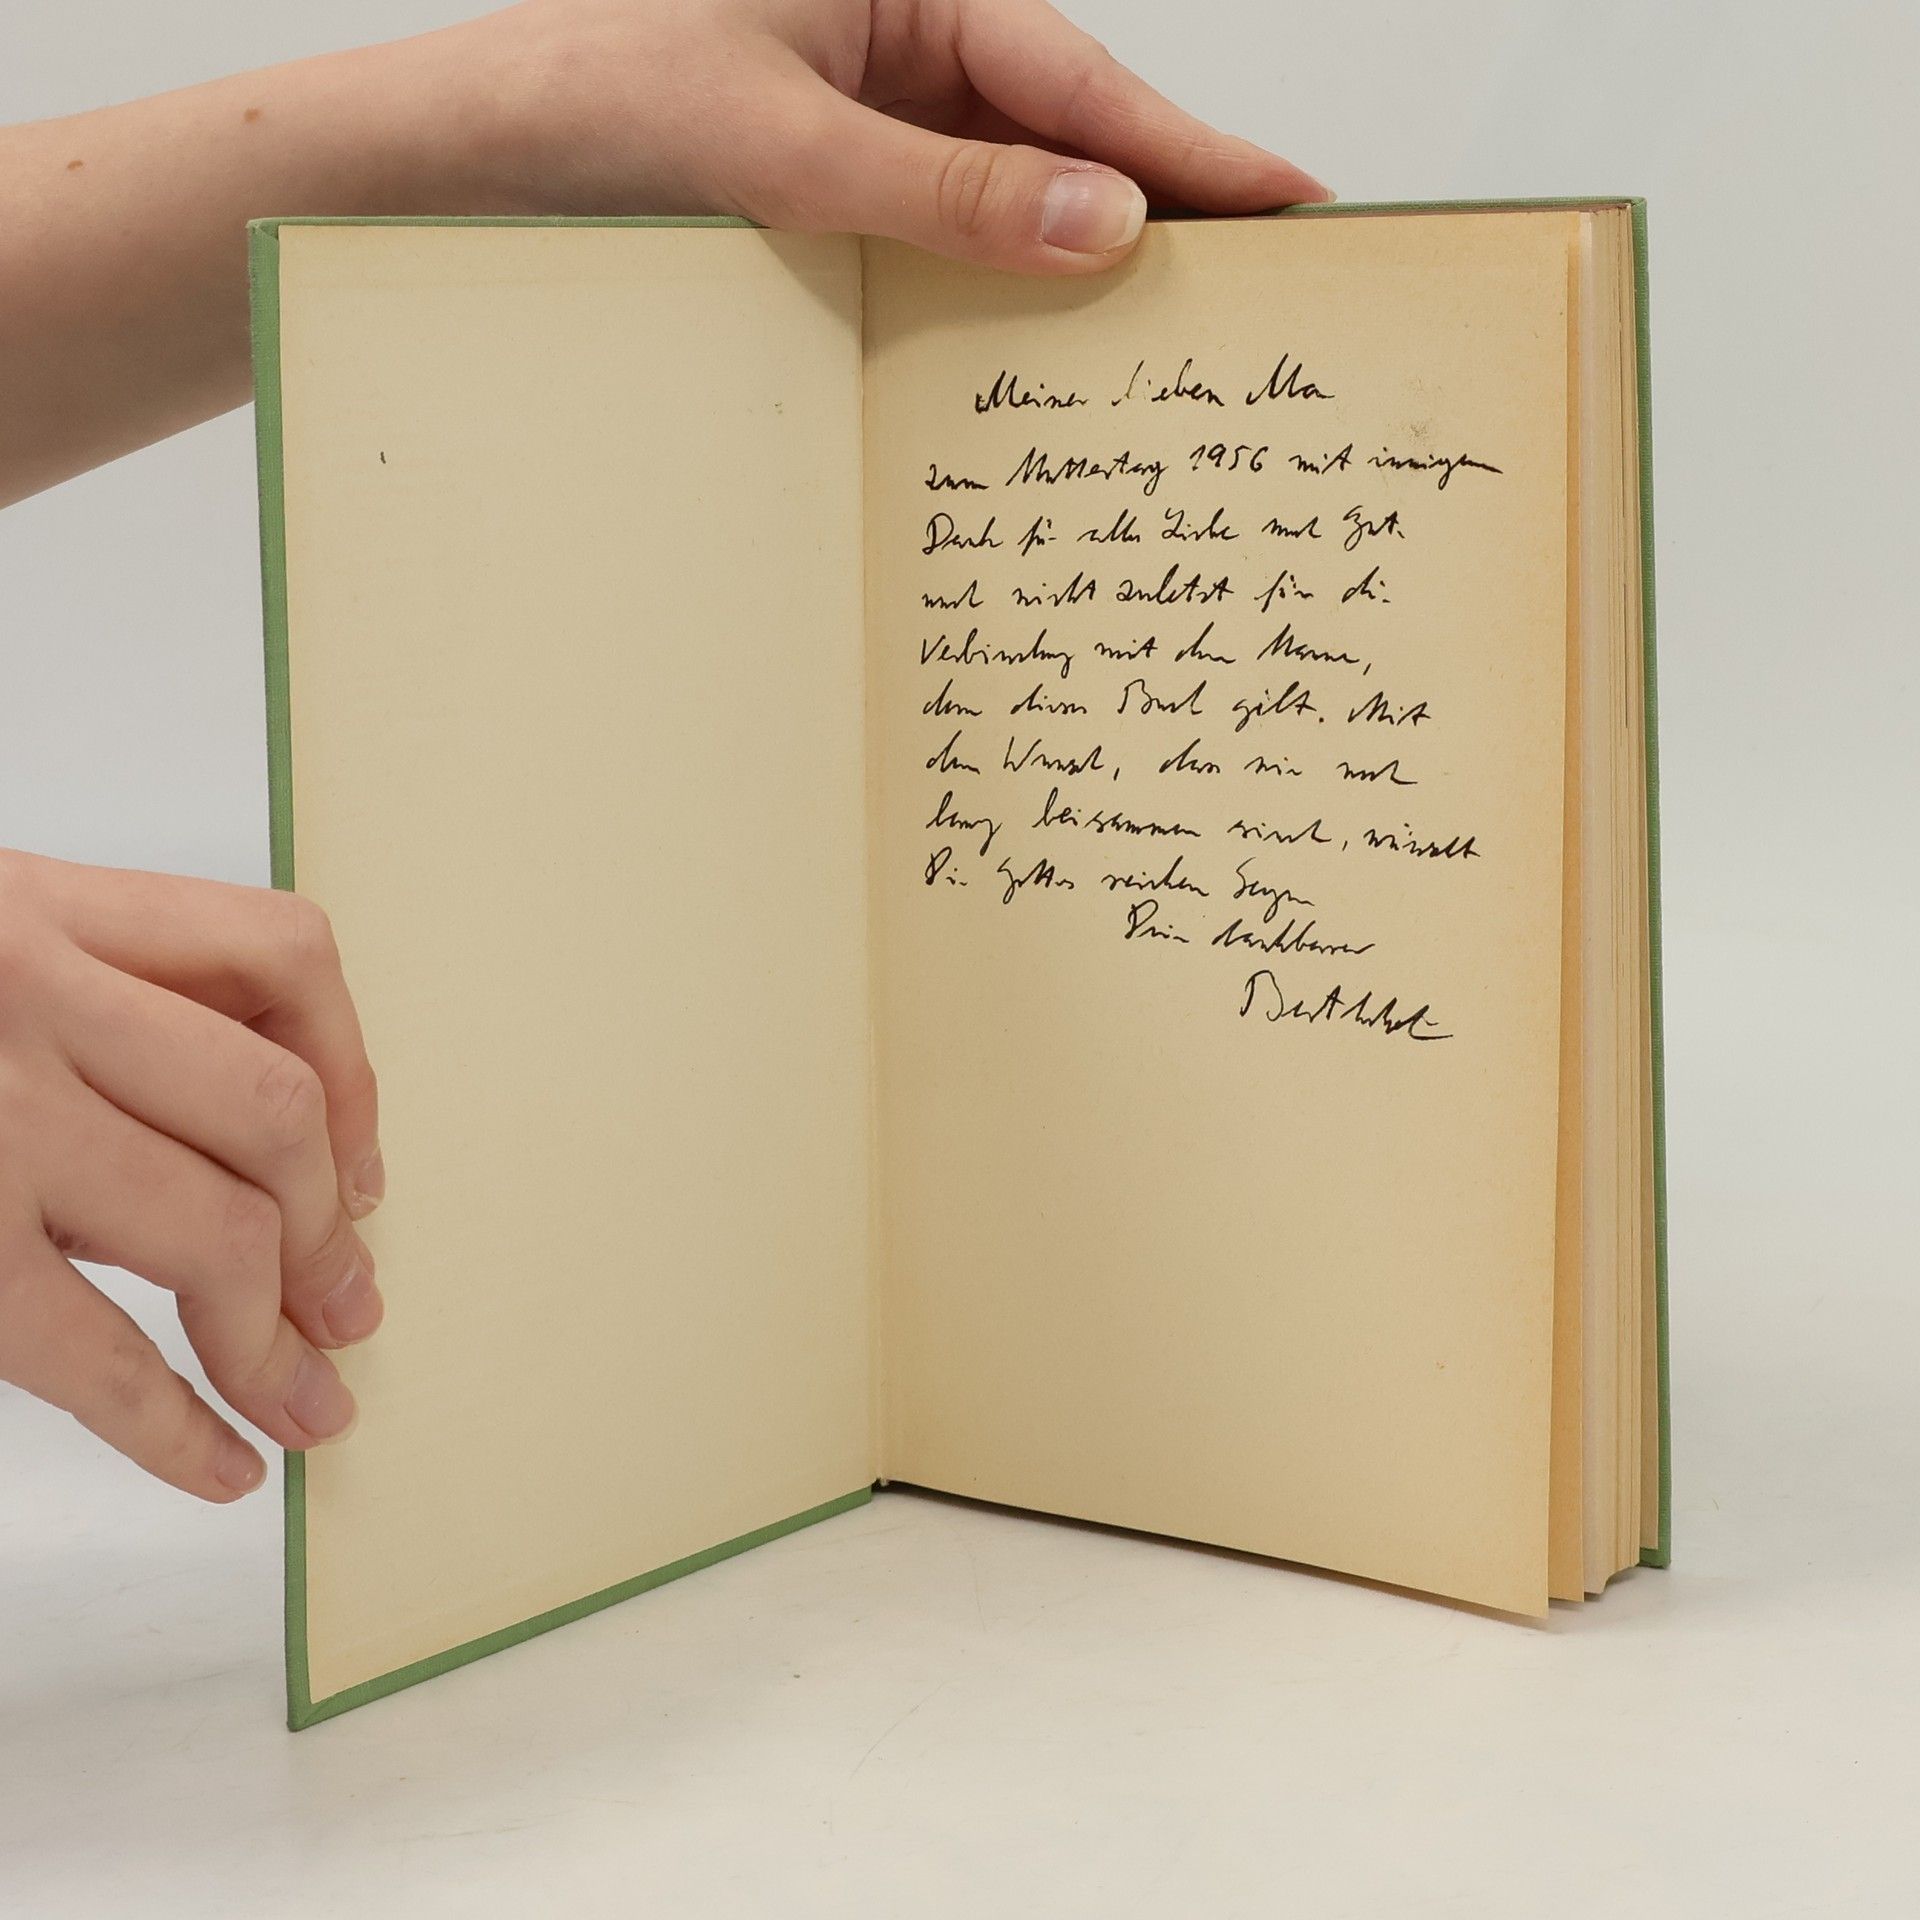 Meiner lieben Ma
zum Muttertag 1956 mit innigem
Dank für alle Liebe und Güte
und nicht zuletzt für die
Verbindung mit dem Manne,
dem dieses Buch gilt. Mit
dem Wunsch, dass wir noch
lang beisammen sind, wünscht
Dir Gottes reichen Segen
Dein dankbarer
Berthold